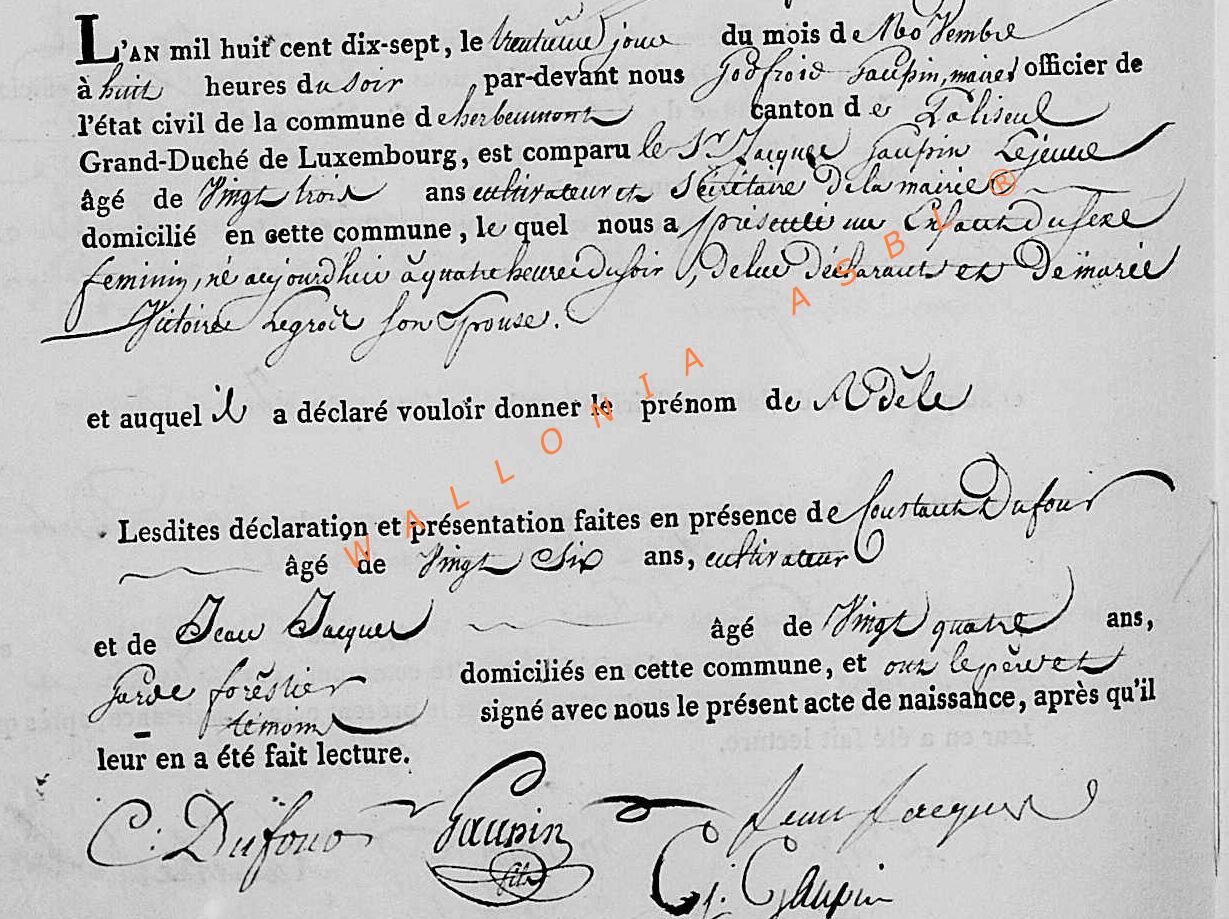 L'AN mil huit cent dix-sept, le trentieme jour du mois de Novembre
à huit heures du soir, par-devant nous Godfroid Gaupin, maire officier de
l'état civil de la commune de herbeumont canton de Paliseul
Grand-Duché de Luxembourg, est comparu le Sr Jacques Gaupin Lejeune
âgé de Vingt trois ans cultivateur et Sécrétaire De la mairie
domicilié en cette commune, le quel nous a présenté un Enfant du sexe
feminin, né aujourd'hui à quatre heures du soir, de lui Déclarant et De marie
Victoire Legros son Epouse.
et auquel il a déclaré vouloir donner le prénom de Adèle
Lesdites déclaration et présentation faites en présence de Constant Dufour
âgé de Vingt Six ans, cultivateur
et de Jean Jacques âgé de Vingt quatre ans,
garde forêstier domiciliés en cette commune, et ont le père et
témoins signé avec nous le présent acte de naissance, après qu'il
leur en a été fait lecture.
C. Dufour Gaupin Jean Jacques
fils G. Gaupin
WALLONIA ASBL ®